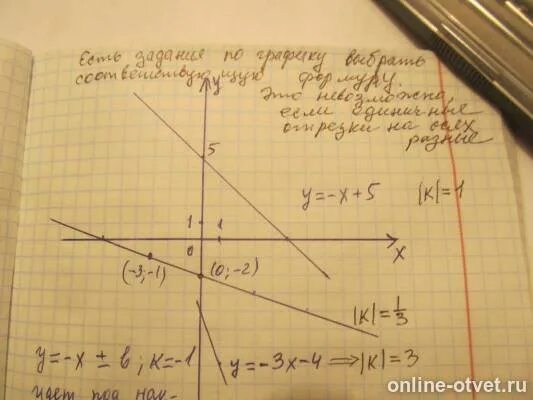 Есть задания по графику выбрать
соответствующую формуру.
Это невозможна,
если единичные
отрезки на осях
разные
y
5
y=-x+5 |K|=1
1
1
0
x
(-3;-1) (0;-2)
|K|=1/3
y=-x±b; K=-1 y=-3x-4 ⇒|K|=3
идет под нак-
online-otvet.ru